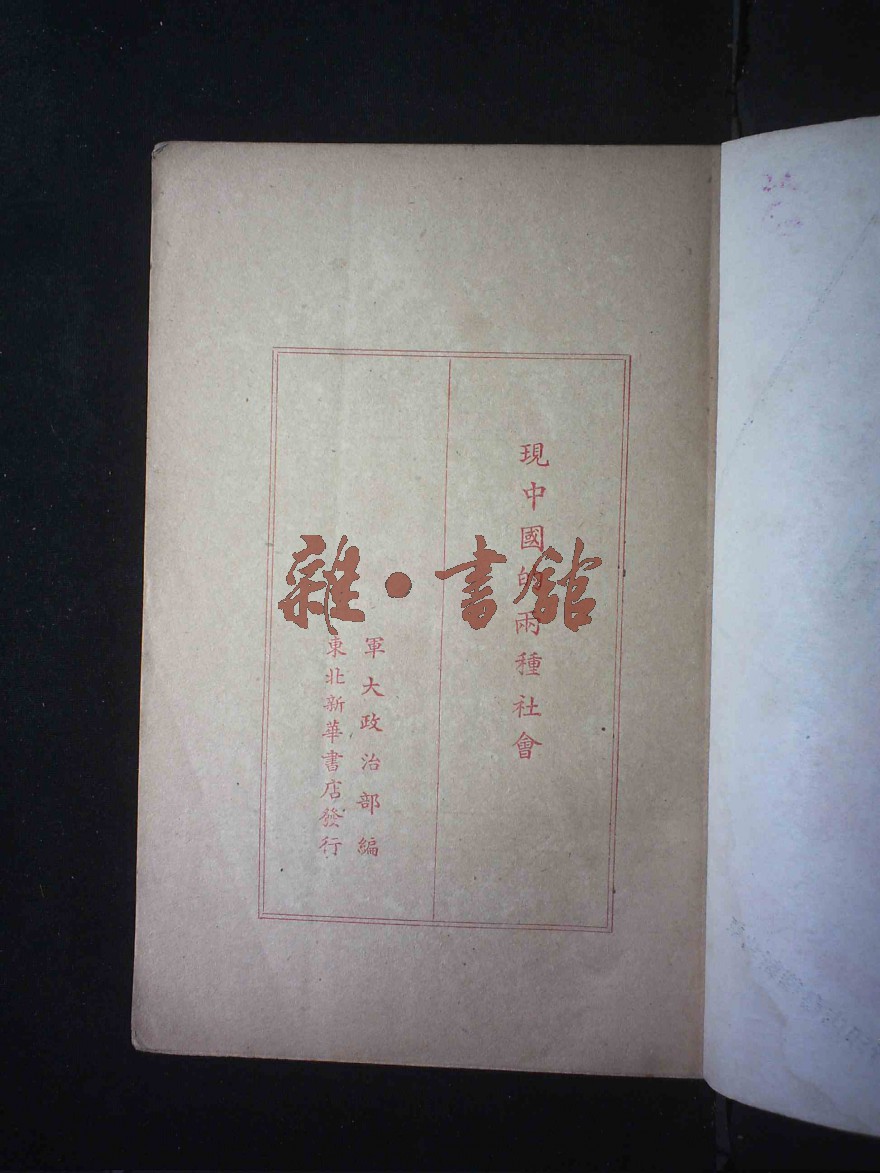 現中國的兩種社會
軍大政治部編
東北新華書店發行
雜·書館